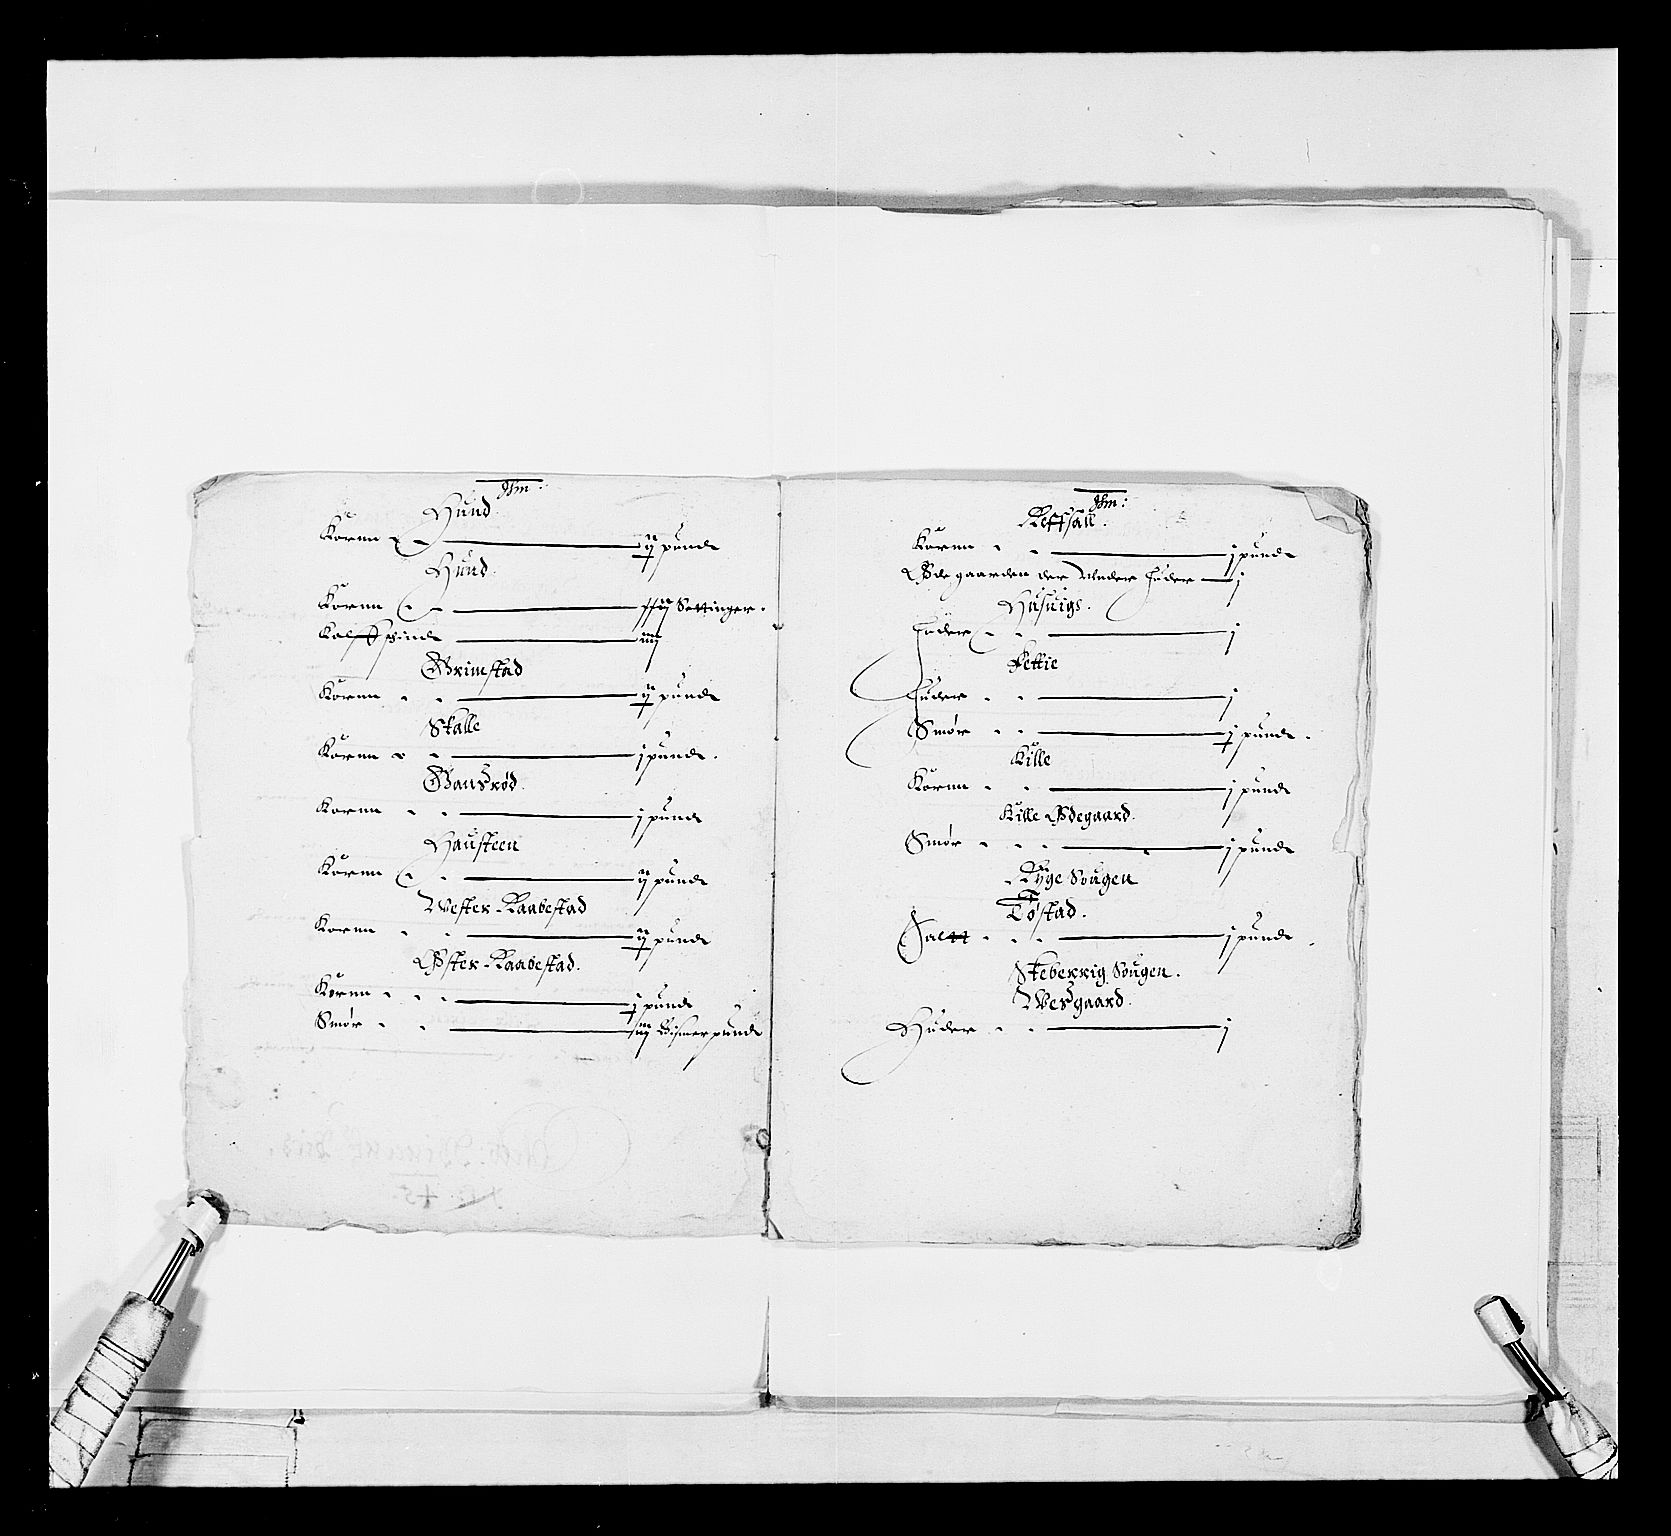 Hund
Kornn ij pund
Hund
Kornn Settinger.
Kalffskind iiij
Grimstad
Kornn ij pund
Skalle
Kornn j pund.
Gansrød
Kornn j pund
Hausteen
Kornn ij pund
Wester-Raabestad
Kornn ij pund
Øster-Raabestad.
Kornn j pund
Smør Bismerpund
Reffsall.
Kornn j pund
Ødegaarden der Under huder j
Husuigs.
huder j
Pettie
huder j
Smør j pund.
Kille
Kornn j pund
Kille Ødegaard.
Smør j pund
Ryge Sougen
Tøstad.
Saltt j pund
Skeberrig Sougen.
Wesgaard.
Huder j